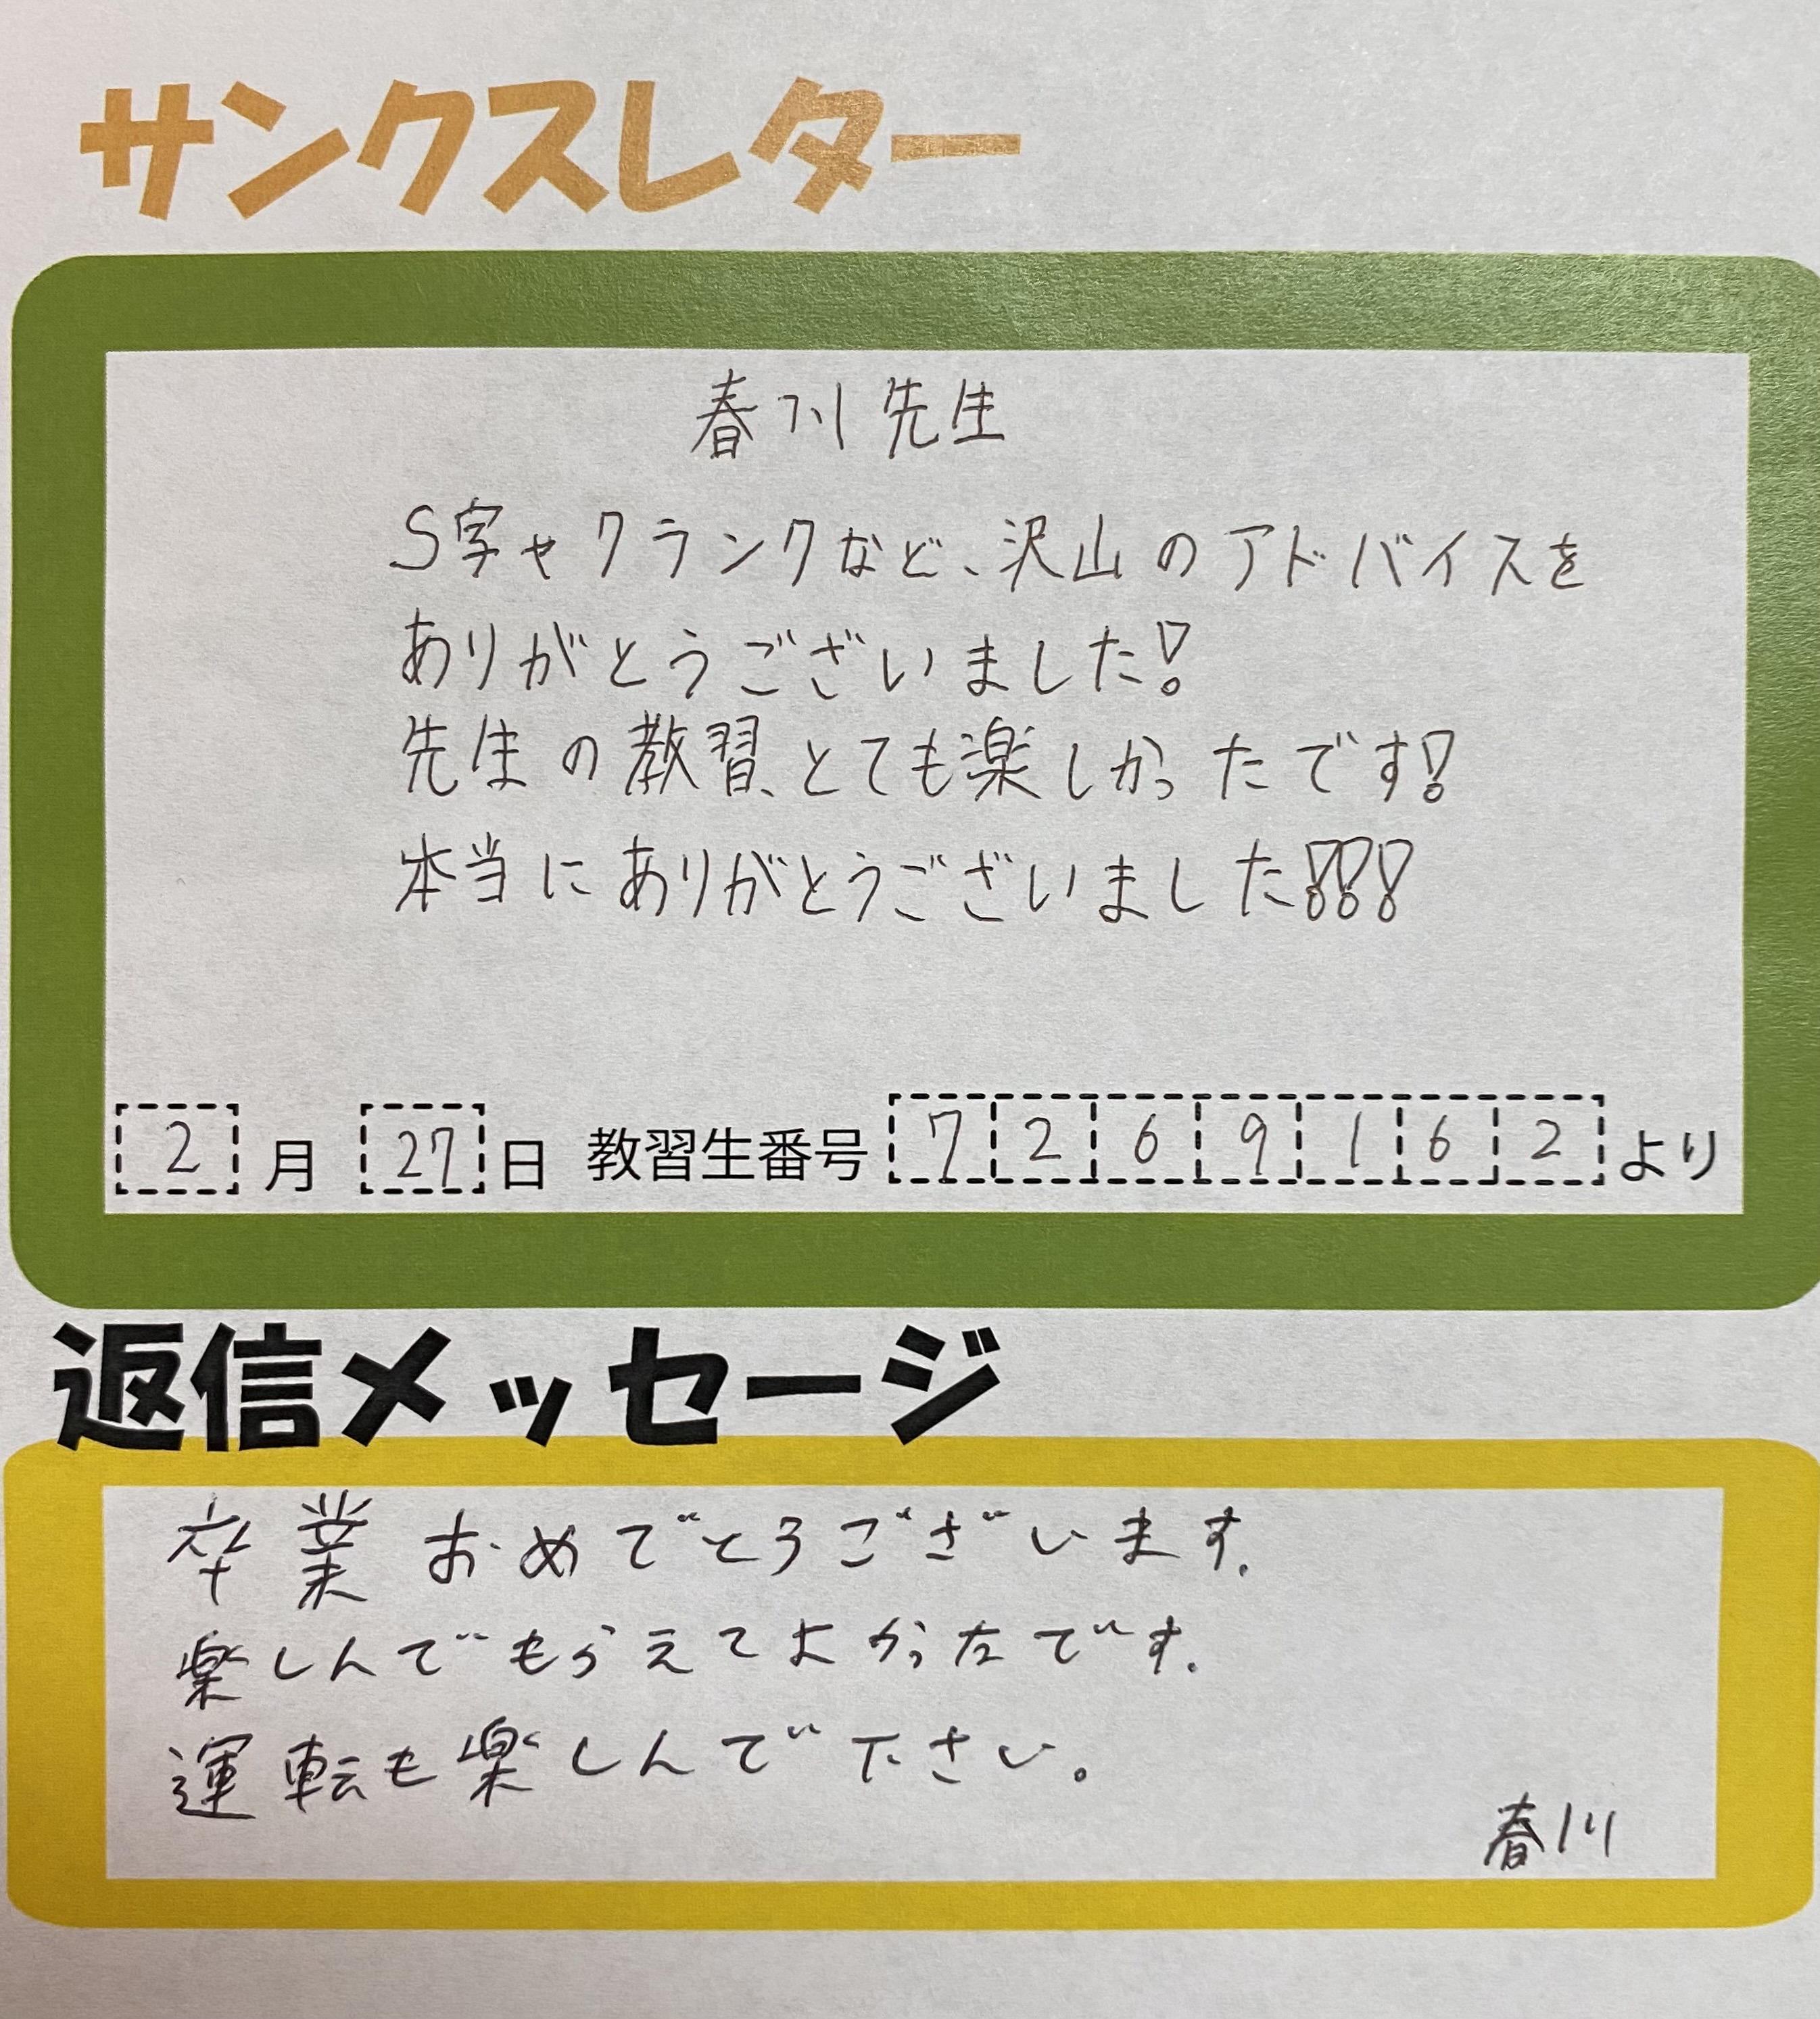 サンクスレター
春川先生
S字やクランクなど、沢山のアドバイスを
ありがとうございました!
先生の教習、とても楽しかったです!
本当にありがとうございました!!!
2月 27日 教習生番号 7269162より
返信メッセージ
卒業おめでとうございます。
楽しんでもらえてよかったです。
運転も楽しんで下さい。
春川